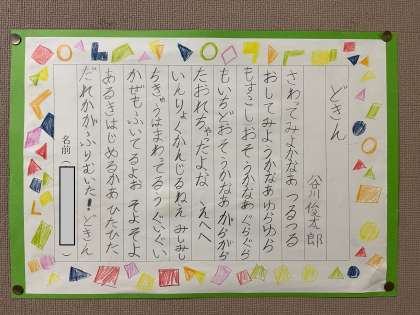 どきん
谷川俊太郎
さわってみよかなあ つるつる
おしてみようかなあ ゆらゆら
もすこしおそうかなあ ぐらぐら
もいちどおそうかなあ がらがら
たおれちゃたよな えへへ
いんりょくかんじるねえ みしみし
ちきゅうはまわってるう ぐいぐい
かぜもふいてるよお そよそよ
あるきはじめるかあ ひたひた
だれかがふりむいた！どきん
名前（